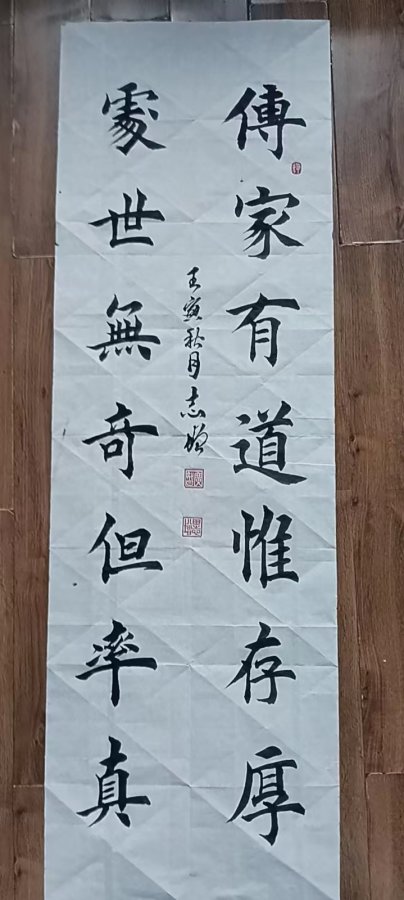 傳家有道惟存厚
處世無奇但率真
壬寅秋月志增